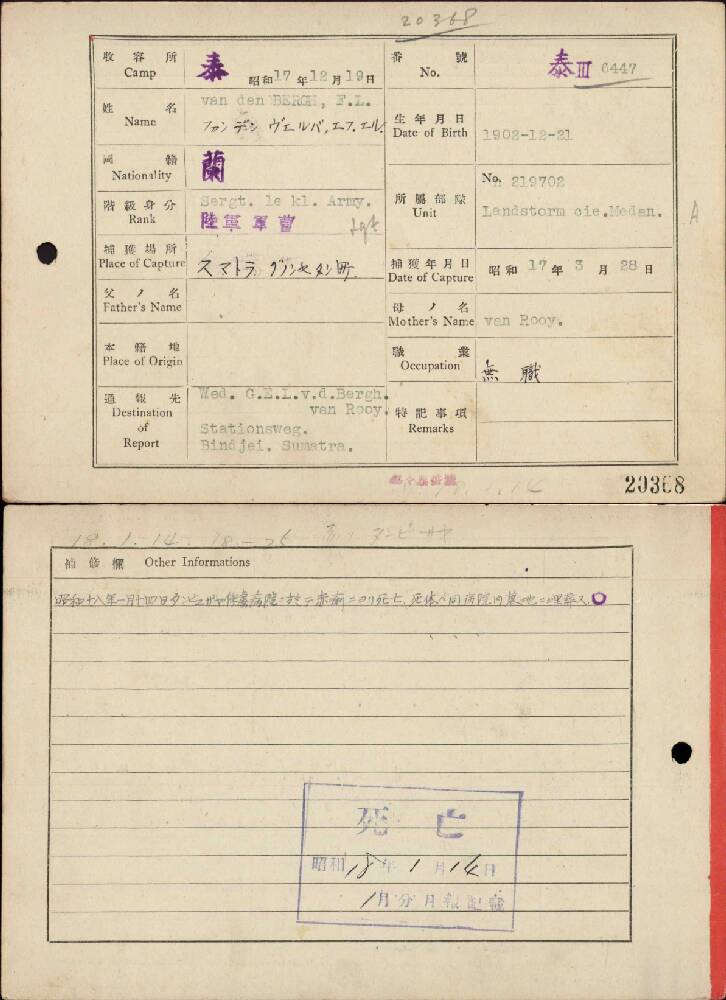 20368
收容所 Camp 泰 昭和17年12月19日
番號 No. 泰III 6447
姓名 Name van den BERGH, F.L.
ファン デン ヴェルバ, エフ. エル.
生年月日 Date of Birth 1902-12-21
國籍 Nationality 蘭
階級身分 Rank Sergt. 1e kl. Army.
陸軍軍曹 Sgt
所屬部隊 Unit No. 219702
Landstorm cie. Medan. A
捕獲場所 Place of Capture スマトラ
捕獲年月日 Date of Capture 昭和17年3月28日
父ノ名 Father's Name
母ノ名 Mother's Name van Rooy.
本籍地 Place of Origin
職業 Occupation 無職
通報先 Destination of Report Wed. G.E.L.v.d.Bergh.
van Rooy.
Stationsweg.
Bindjei. Sumatra.
特記事項 Remarks
18.1.14
20368
18.1.14.
補修欄 Other Informations
昭和十八年一月十四日
病院ニ於テ
ニヨリ死亡、死体ハ同病院内墓地ニ埋葬ス
死亡
昭和18年1月14日
1月分月報記載